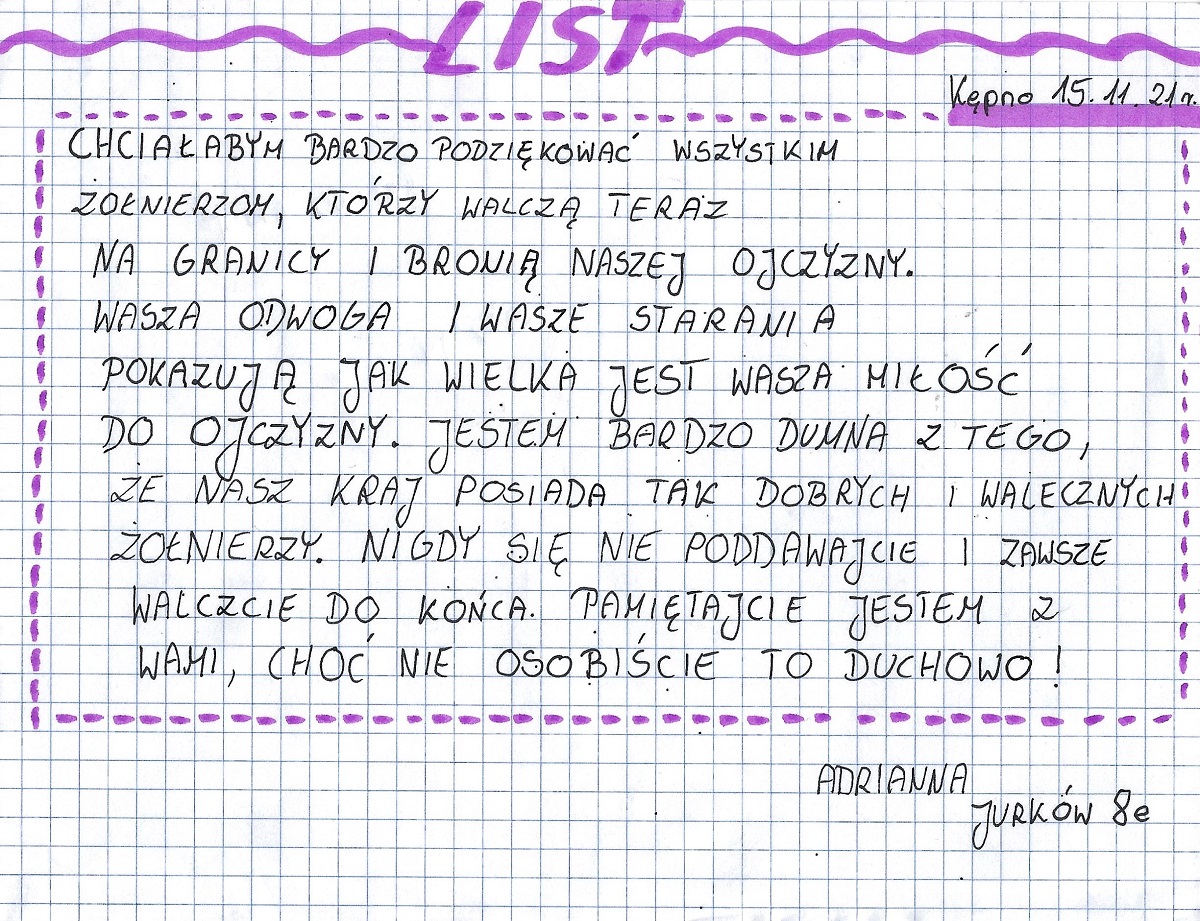 LIST
Kępno 15.11.21r.
CHCIAŁABYM BARDZO PODZIĘKOWAĆ WSZYSTKIM
ŻOŁNIERZOM, KTÓRZY WALCZĄ TERAZ
NA GRANICY I BRONIĄ NASZEJ OJCZYZNY.
WASZA ODWOGA I WASZE STARANIA
POKAZUJĄ JAK WIELKA JEST WASZA MIŁOŚĆ
DO OJCZYZNY. JESTEM BARDZO DUMNA Z TEGO,
ŻE NASZ KRAJ POSIADA TAK DOBRYCH I WALECZNYCH
ŻOŁNIERZY. NIGDY SIĘ NIE PODDAWAJCIE I ZAWSZE
WALCZCIE DO KOŃCA. PAMIĘTAJCIE JESTEM Z
WAMI, CHOĆ NIE OSOBIŚCIE TO DUCHOWO!
ADRIANNA
JURKÓW 8e